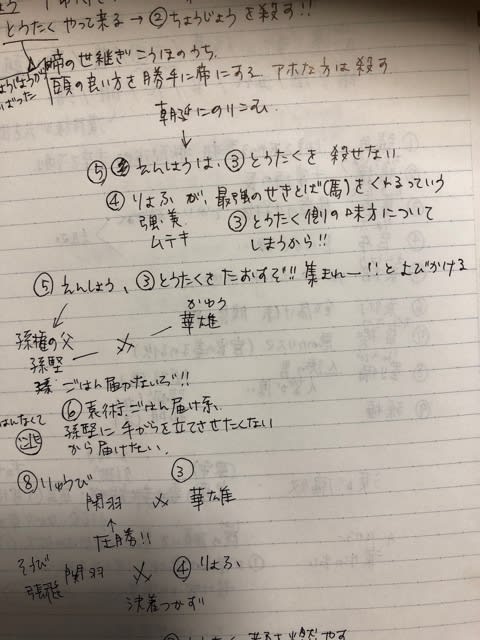 とうたくやって来る → ②ちょうじょうを殺す!!
帝の世継ぎこうほのうち、
頭の良い方を勝手に帝にする アホな方は殺す
ばった
朝廷にのりこむ
↓
⑤ えんしょうは、③とうたくを殺せない
④りょふが、最強のせきとば(馬)をくれるっていう
強・美
ムテキ
③とうたく側の味方について
しまうから!!
⑤えんしょう、③とうたくをたおすぞ!! 集まれー!!とよびかける
孫権の父
孫堅 × 華雄
かゆう
ごはん届かないぞ!!
はんなくて
逃
⑥袁術、ごはん届け係
孫堅に手がらを立てさせたくない
から届けない
⑧りゅうび ③
関羽 × 華雄
↑
圧勝!!
張飛 関羽 × ④りょふ
決着つかず